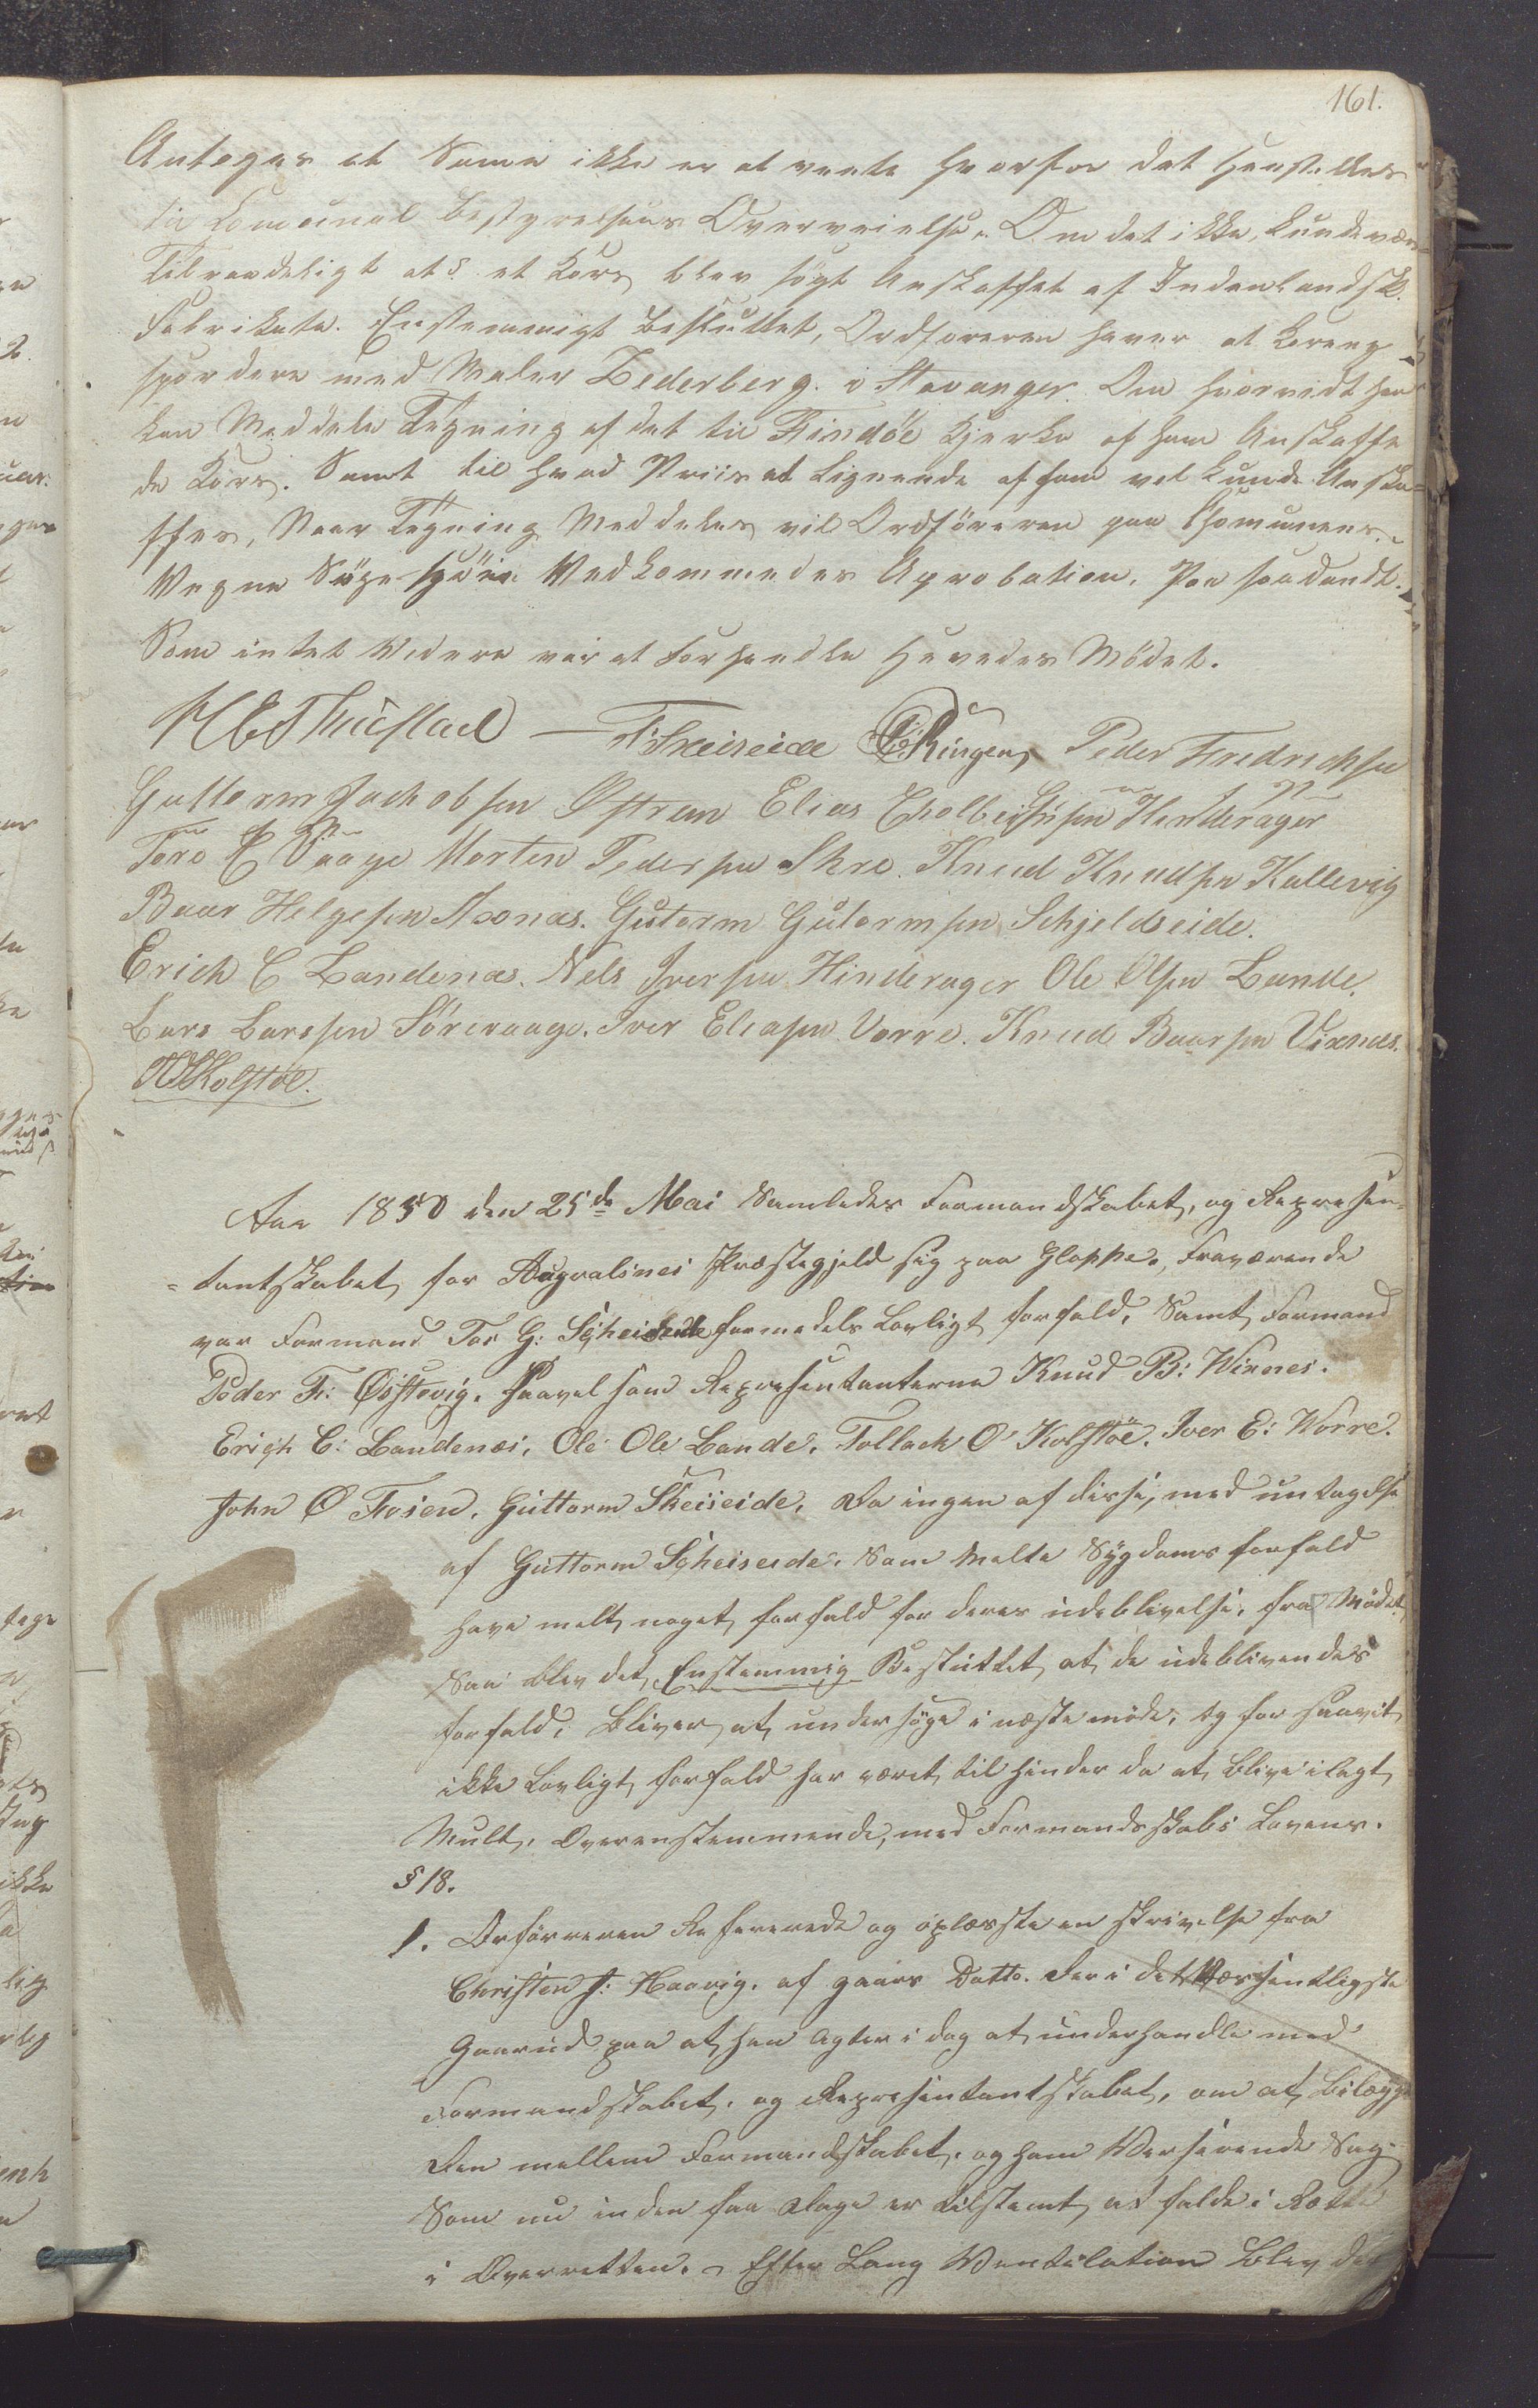 161.
Antages at Samme ikke er at vente hvorfor det Henstilles
til Comunal Bestyrelsens Overveielse. Om det ikke, kunde være
Tilraadeligt at et Kors blev søgt Anskaffet af Indenlandsk
Fabrikata. Enstemmigt Besluttet, Ordføreren haver at Coreng
spordere med Maler Zederberg. i Stavanger. Om hvorvidt han
kan Meddele Tegning af det til Findöe Kjerke af ham Anskaffe
de Kors. Samt til hvad Priis at Lignende af ham vel kunde Anska-
ffes, Naar Tegning Meddeles vil Ordföreren paa Comunens
Vegne Söge Vedkommedes Aprobation, Paa saadandt.
Som intet Videre var at Forhandle Hævedes Mödet.
Peder Fredrichsen
Guttorm Jachobsen Østrem Elias Hinderager
Tore E Vaage Morten Pedersen Skre. Knud Knudsen Kallevig
Baar Helgesen Axonæs. Gutorm Gutormsen Schjeldseide.
Erich C Landenæs. Nels Iversen Hinderager Ole Olsen Lande.
Lars Larssen Sörevaage. Iver Eliasen Vorre. Knud Baarsen Vixnæs.
Aar 1850 den 25de Mai Samledes Formandskabet, og Represen-
-tantskabet for Augvalsnes Præstegjeld sig paa Gloppe, Fraværende
var Formand Tor G: formedels Lovligt forfald, Samt Formand
Peder Fr: Østevig. saavel som Representanterne Knud B: Winnes.
Erich C: Landenæs, Ole Ole Lande, Tollack O Kolstöe. Iver E: Worre.
John O Fosen, Guttorm Skeiseide, Da ingen af disse, med untagelse
af Guttorm Scheiseide, Som Melte Sygdoms forfald
have melt noget forfald for deres udeblivelse, fra Mödet
Saa blev det, Enstemmig Besluttet at de udeblivendes
forfald, bliver at undersöge i næste möde, og for saavit
ikke Lovligt forfald har været til hinder da at blive ilagt
Mult, Overenstemmende, med Formandsskabs Lovens.
§ 18.
1. Orförreren Refererede og oplæste en skrivelse fra
Christen J: Haavig, af gaars Datto. der i det Væsentligste
Gaar ud paa at han agter i dag at underhandle med
Formandskabet, og Representantskabet, om at bilægge
Den mellem Formandskabet, og ham Verserende Sag
Som nu inden faa dage er tilstemt at falde i Rette
i Overretten. Efter Lang Ventilation blev det